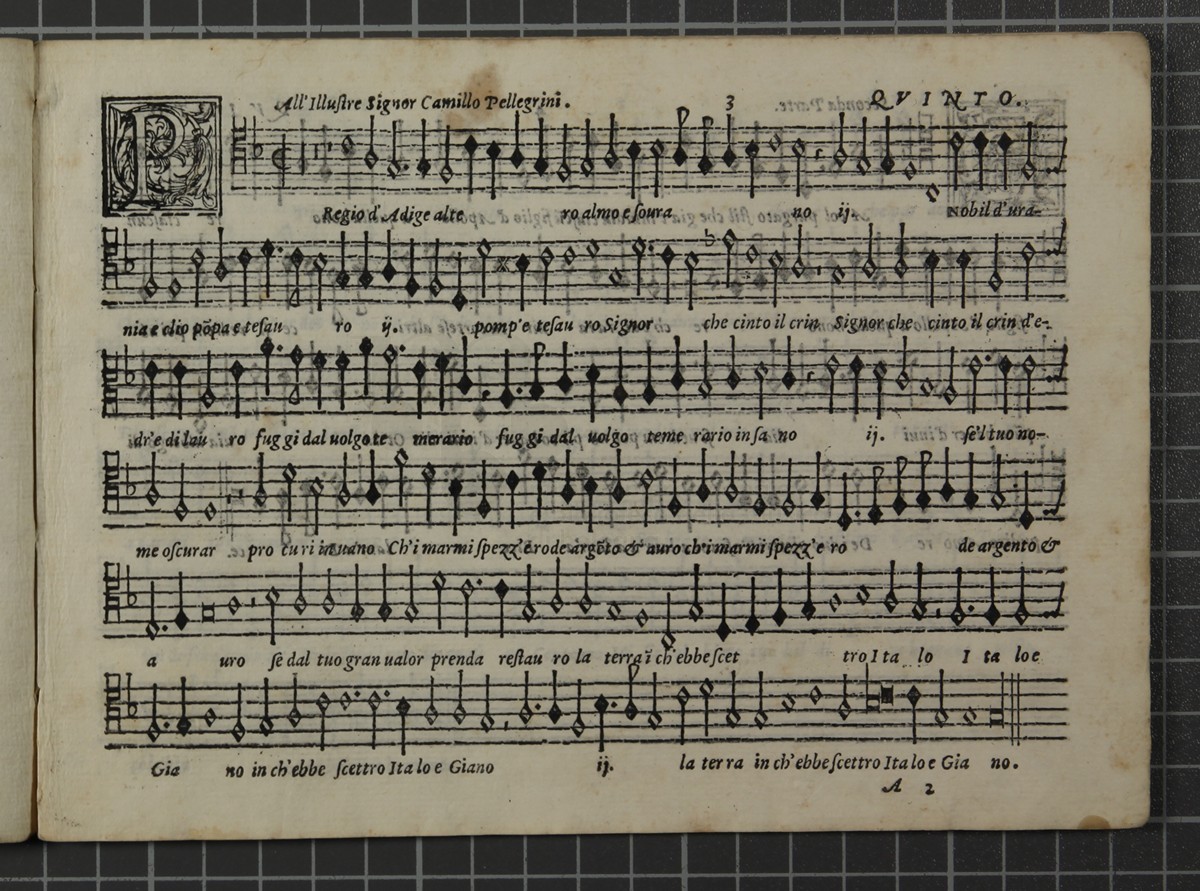 All'Illuſtre Signor Camillo Pellegrini. 3 QVINTO.
R Regio d'Adige alte ro almo e ſoura no ij. Nobil d'ura-
nia e clio põpa e teſau ro ij. pomp'e teſau ro Signor che cinto il crin Signor che cinto il crin d'e-
dr'e di lau ro fug gi dal uolgo te merario fug gi dal uolgo teme rario in ſa no ij. ſe'l tuo no-
me oſcurar pro cu ri in uano Ch'i marmi ſpezz'e rode argẽto & auro ch'i marmi ſpezz'e ro de argento &
a uro ſe dal tuo gran ualor prenda reſtau ro la terra ĩ ch'ebbe ſcet tro I ta lo I ta lo e
Gia no in ch'ebbe ſcettro Ita lo e Giano ij. la ter ra in ch'ebbe ſcettro Ita lo e Gia no.
A 2